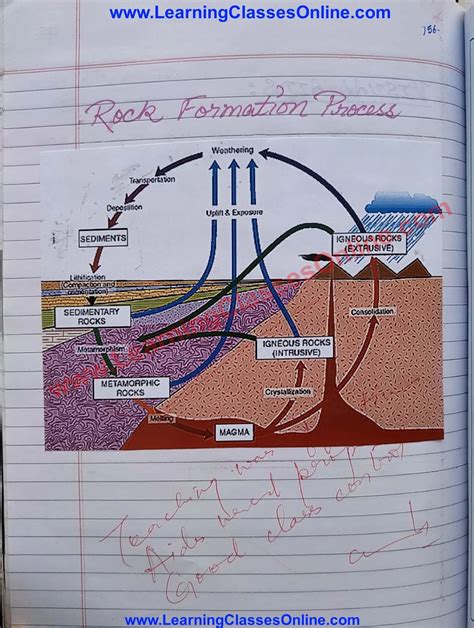 www.LearningClassesOnline.com
156.
Rock Formation Process
Weathering
Transportation
Deposition
Uplift & Exposure
SEDIMENTS
IGNEOUS ROCKS
(EXTRUSIVE)
Lithification
(Compaction and
cementation)
SEDIMENTARY
ROCKS
Consolidation
Metamorphism
IGNEOUS ROCKS
(INTRUSIVE)
METAMORPHIC
ROCKS
Crystallization
Melting
MAGMA
Teaching was
Aids used
Good class control
www.LearningClassesOnline.com